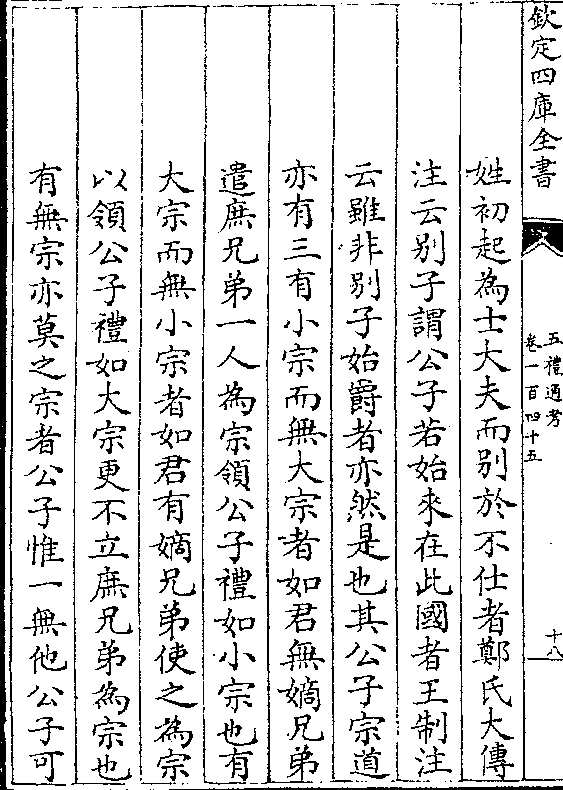 欽定四庫全書
五禮通考
卷一百四十五
十八
姓初起為士大夫而别於不仕者鄭氏大傳
注云别子謂公子若始來在此國者王制注
云雖非别子始爵者亦然是也其公子宗道
亦有三有小宗而無大宗者如君無嫡兄弟
遣庶兄弟一人為宗領公子禮如小宗也有
大宗而無小宗者如君有嫡兄弟使之為宗
以領公子禮如大宗更不立庶兄弟為宗也
有無宗亦莫之宗者公子惟一無他公子可